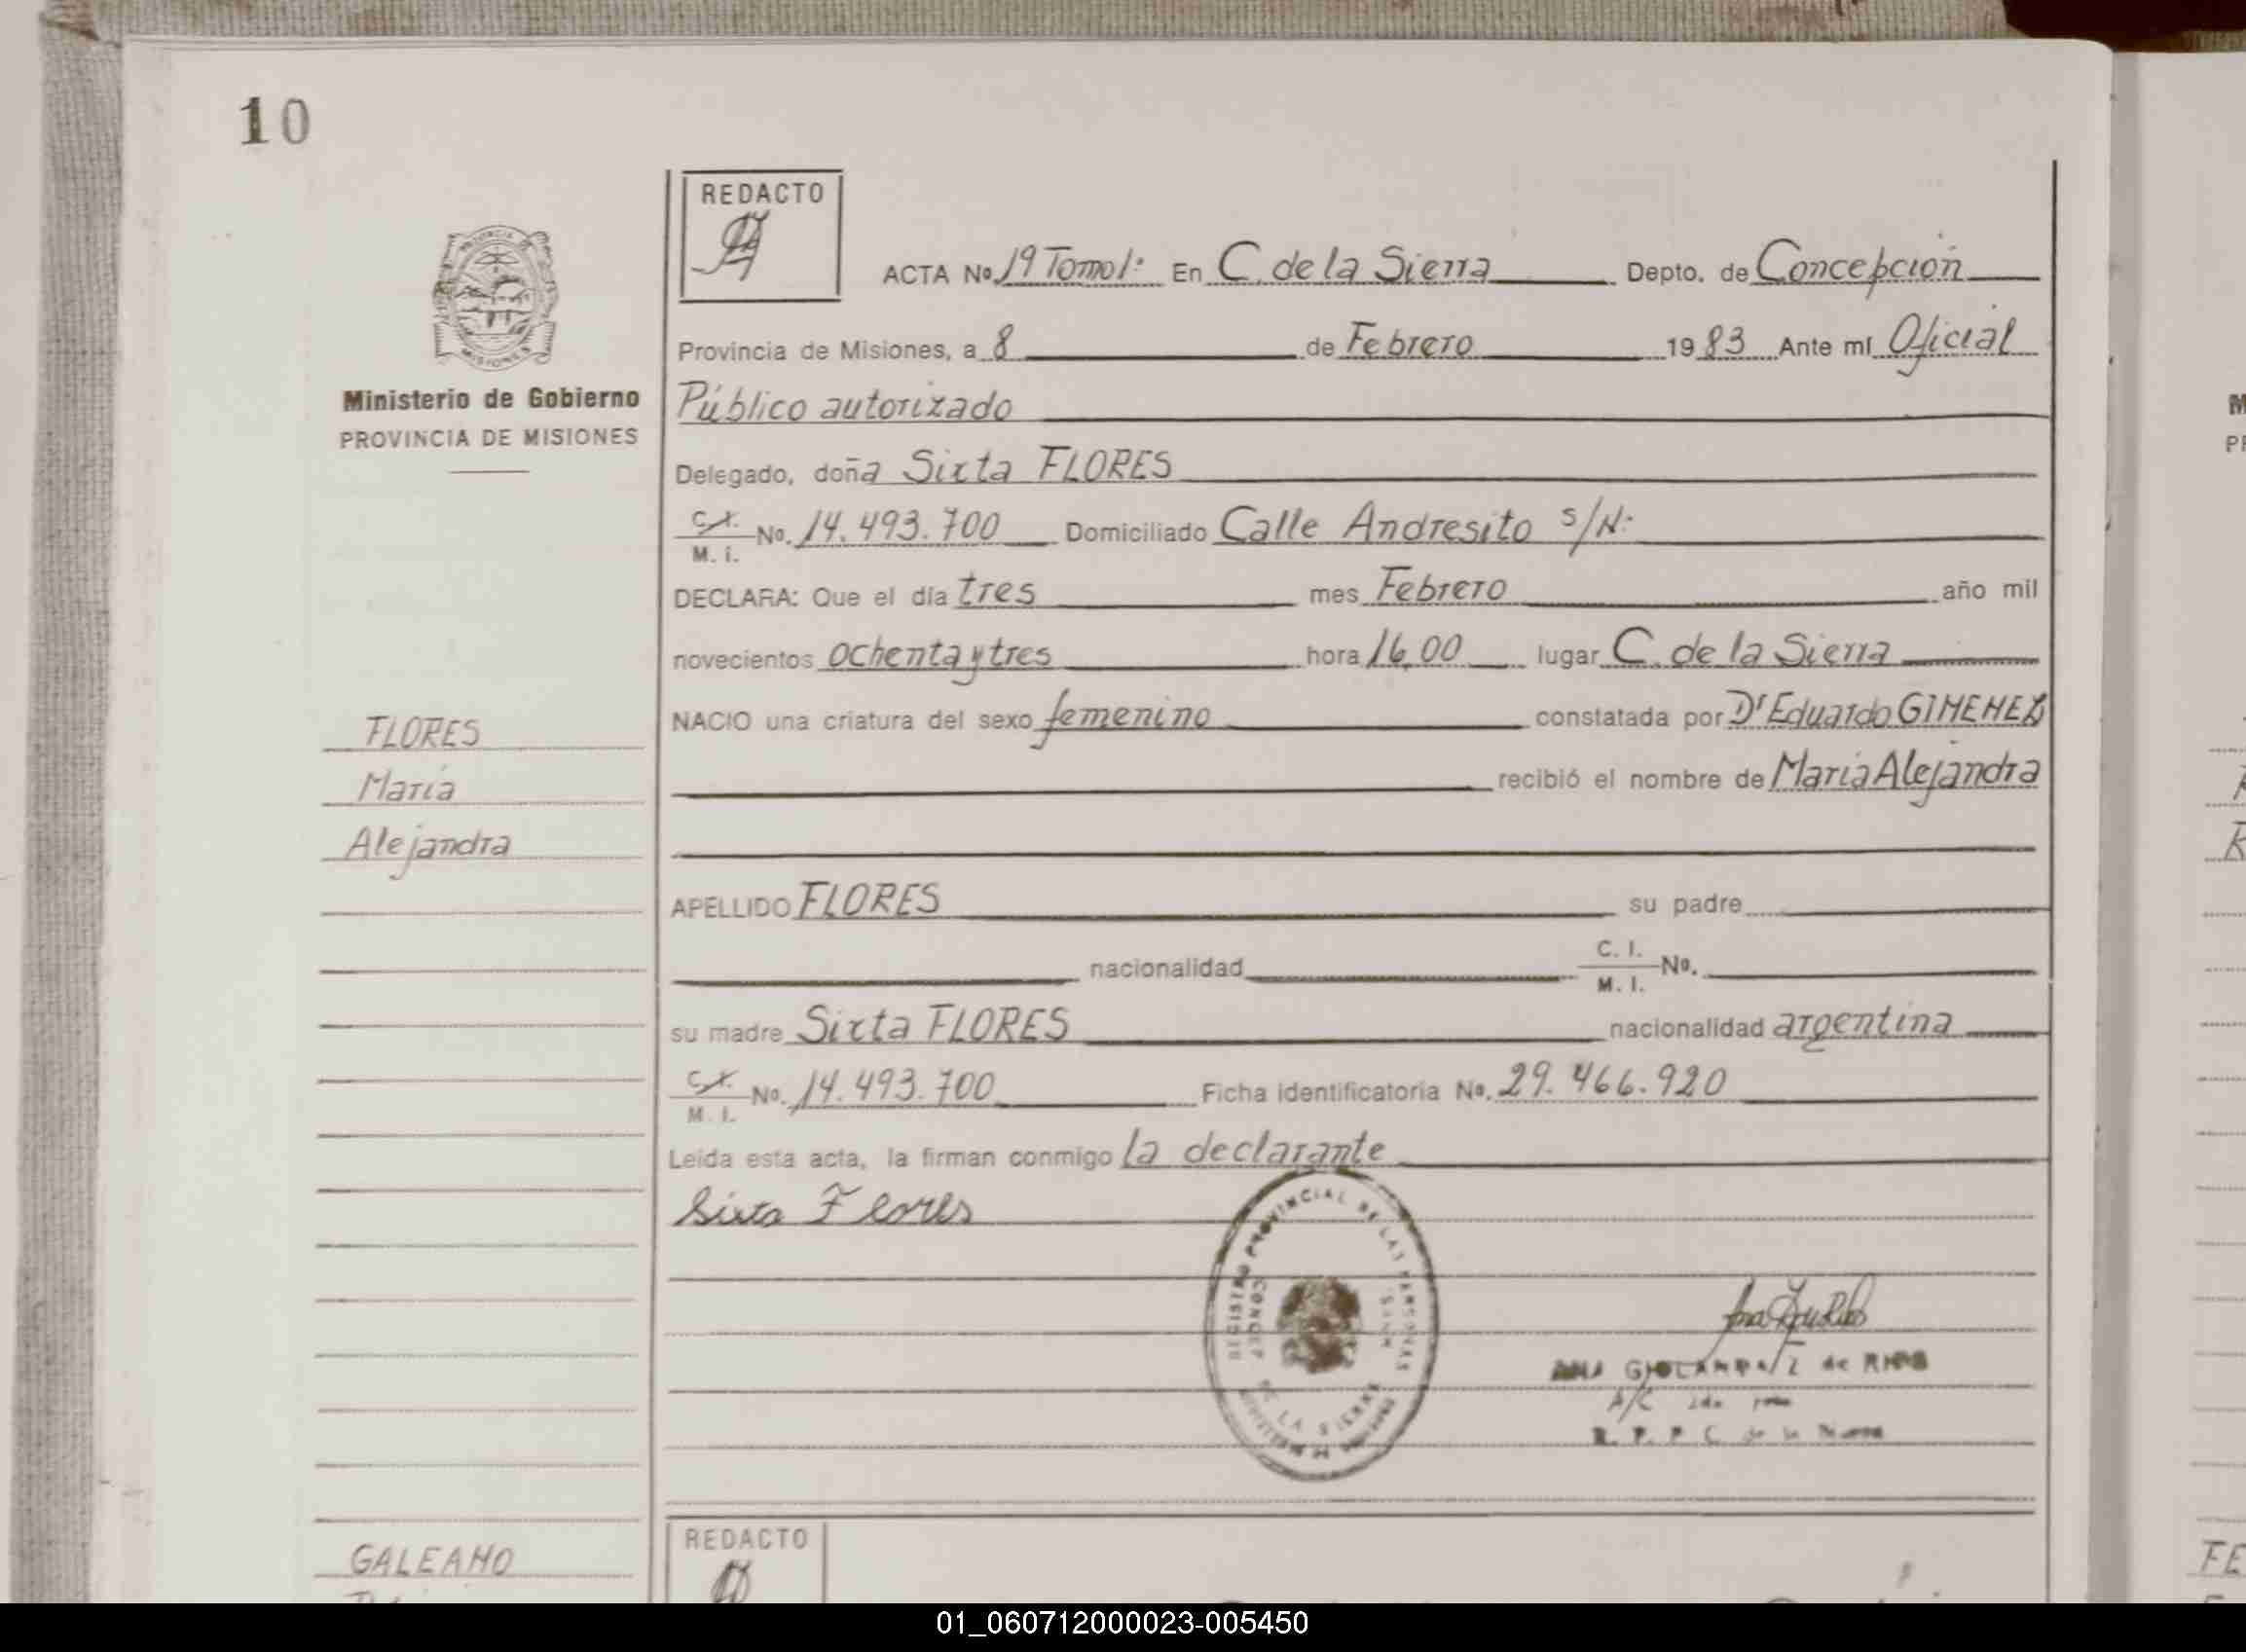 10
REDACTO
ACTA No. 19 Tomo 1º En C. de la Sierra Depto. de Concepción
Provincia de Misiones, a 8 de Febrero 1983 Ante mí Oficial
Ministerio de Gobierno
PROVINCIA DE MISIONES
Público autorizado
Delegado, doña Sixta FLORES
C.I. M. I. No. 14.493.700 Domiciliado Calle Andresito S/N:
DECLARA: Que el día tres mes Febrero año mil
novecientos ochenta y tres hora 16,00 lugar C. de la Sierra
NACIO una criatura del sexo femenino constatada por Dr Eduardo GIMENEZ
recibió el nombre de María Alejandra
FLORES
María
Alejandra
APELLIDO FLORES su padre
nacionalidad C. I. M. I. No.
su madre Sixta FLORES nacionalidad argentina
C.I. M. I. No. 14.493.700 Ficha identificatoria No. 29.466.920
Leída esta acta, la firman conmigo la declarante
Sixta Flores
REGISTRO PROVINCIAL DE LAS PERSONAS
CONCEP DE LA SIERRA
de RIOS
A/C
R. P. P. C. de la Sierra
GALEANO
REDACTO
01_060712000023-005450